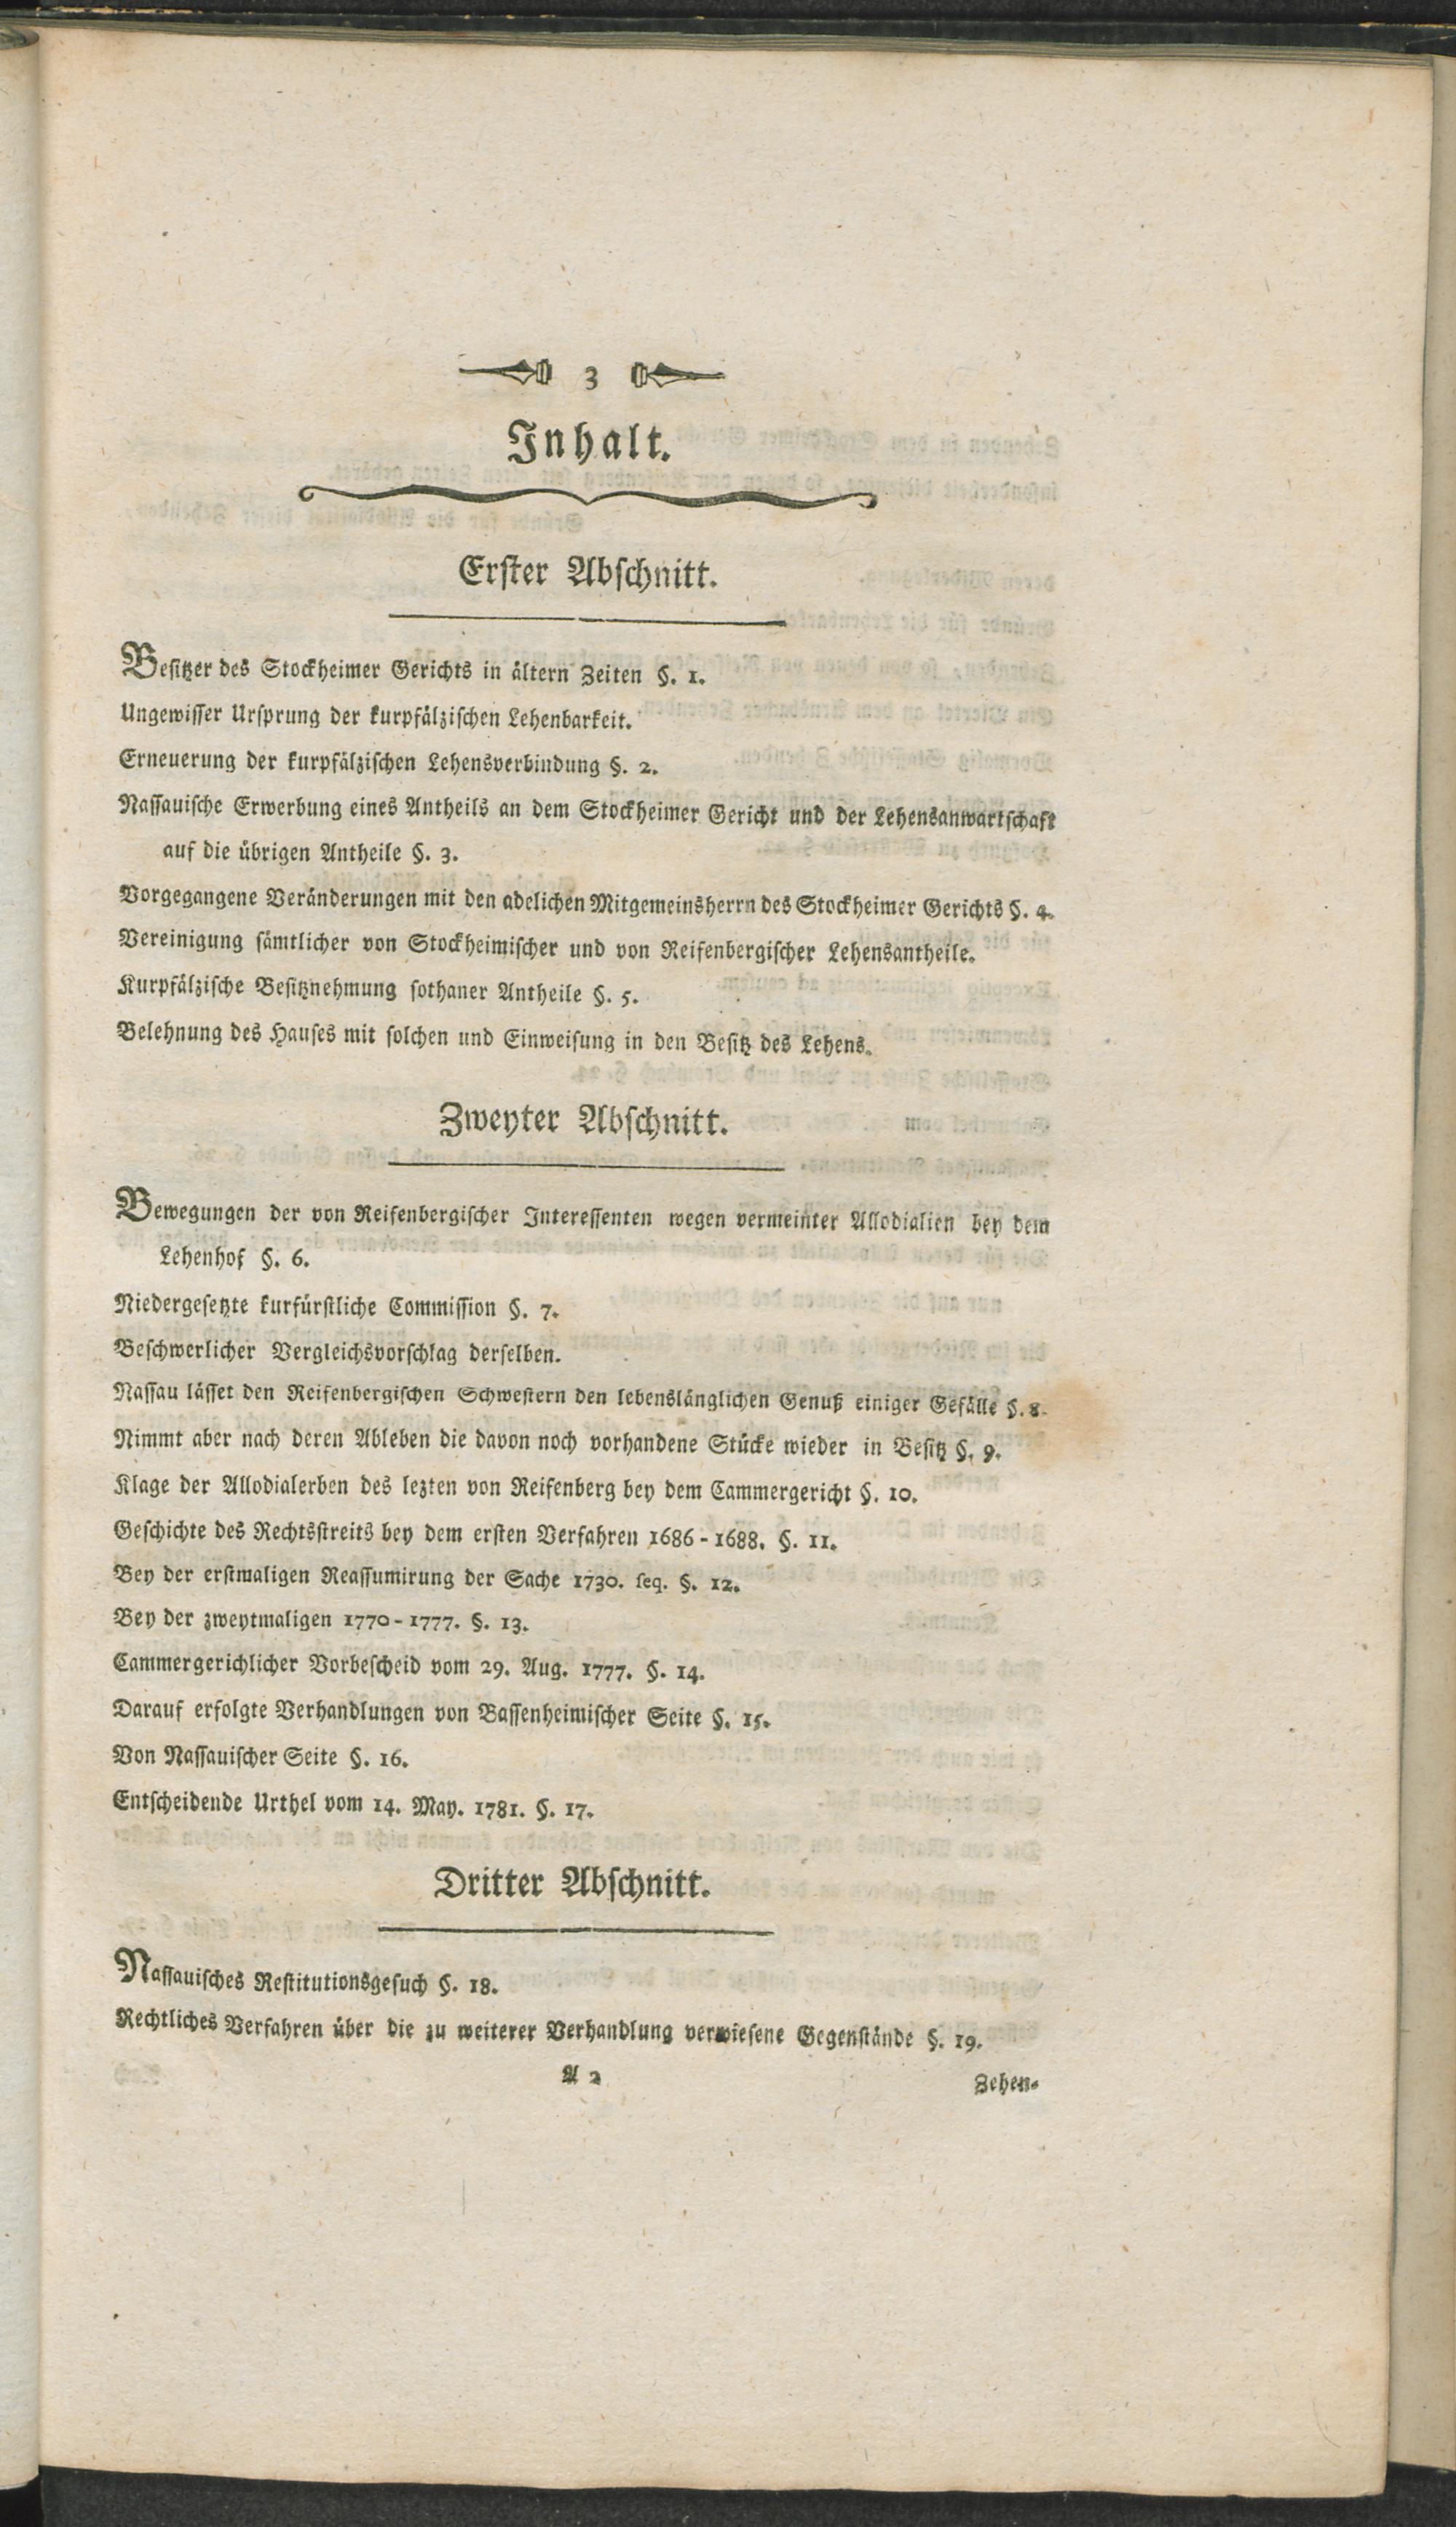 3
Inhalt.
Erster Abschnitt.
Besitzer des Stockheimer Gerichts in ältern Zeiten §. 1.
Ungewisser Ursprung der kurpfälzischen Lehenbarkeit.
Erneuerung der kurpfälzischen Lehensverbindung §. 2.
Nassauische Erwerbung eines Antheils an dem Stockheimer Gericht und der Lehensanwartschaft
auf die übrigen Antheile §. 3.
Vorgegangene Veränderungen mit den adelichen Mitgemeinsherrn des Stockheimer Gerichts §. 4.
Vereinigung sämtlicher von Stockheimischer und von Reifenbergischer Lehensantheile.
Kurpfälzische Besitznehmung sothaner Antheile §. 5.
Belehnung des Hauses mit solchen und Einweisung in den Besitz des Lehens.
Zweyter Abschnitt.
Bewegungen der von Reifenbergischer Interessenten wegen vermeinter Allodialien bey dem
Lehenhof §. 6.
Niedergesetzte kurfürstliche Commission §. 7.
Beschwerlicher Vergleichsvorschlag derselben.
Nassau lässet den Reifenbergischen Schwestern den lebenslänglichen Genuß einiger Gefälle §. 8.
Nimmt aber nach deren Ableben die davon noch vorhandene Stücke wieder in Besitz §. 9.
Klage der Allodialerben des lezten von Reifenberg bey dem Cammergericht §. 10.
Geschichte des Rechtsstreits bey dem ersten Verfahren 1686-1688. §. 11.
Bey der erstmaligen Reassumirung der Sache 1730. seq. §. 12.
Bey der zweytmaligen 1770-1777. §. 13.
Cammergerichlicher Vorbescheid vom 29. Aug. 1777. §. 14.
Darauf erfolgte Verhandlungen von Bassenheimischer Seite §. 15.
Von Nassauischer Seite §. 16.
Entscheidende Urthel vom 14. May. 1781. §. 17.
Dritter Abschnitt.
Nassauisches Restitutionsgesuch §. 18.
Rechtliches Verfahren über die zu weiterer Verhandlung verwiesene Gegenstände §. 19.
A 2
Zehen-